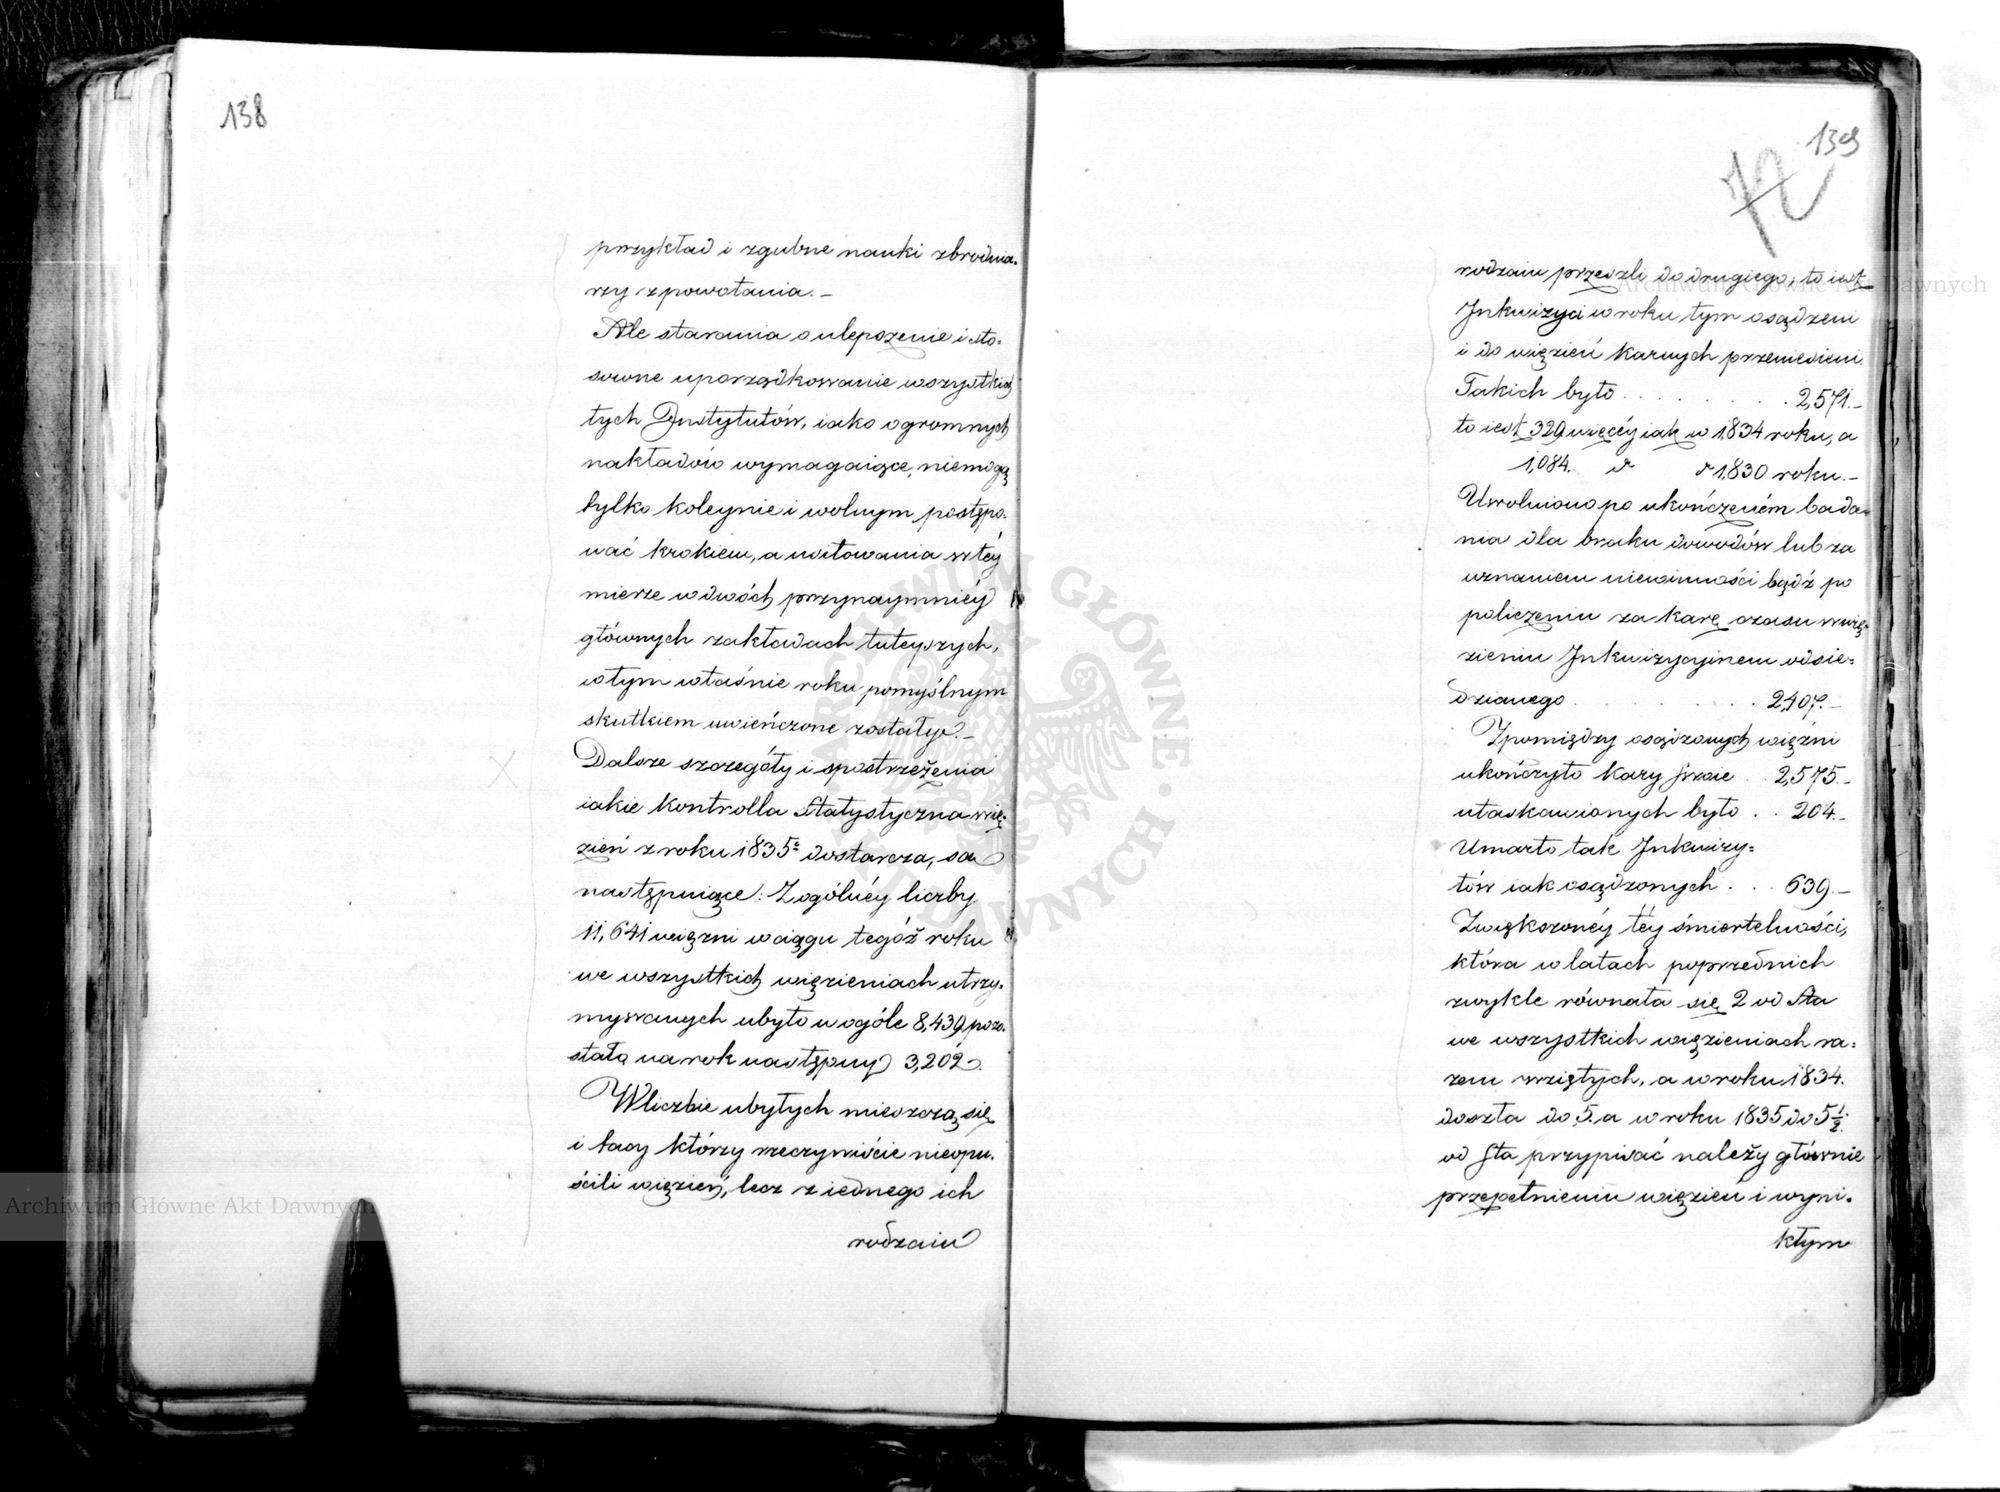 138
przykład i zgubne nauki zbrodnia-
rzy z powołania.-
Ale starania o ulepszenie i sto-
sowne uporządkowanie wszystkich
tych Instytutów, iako ogromnych
nakładów wymagaiące, niemogą
tylko koleynie i wolnym postępo-
wać krokiem, a usiłowania w téy
mierze w dwóch przynaymniéy
głównych zakładach tuteyszych,
w tym właśnie roku pomyślnym
skutkiem uwieńczone zostały.-
Dalsze szczegóły i spostrzeżenia
iakie kontrolla Statystyczna wię-
zień z roku 1835º dostarcza, są
następuiące: Z ogólnéy liczby
11,641 więzni w ciągu tegóż roku
we wszystkich więzieniach utrzy-
mywanych ubyło w ogóle 8,439 pozo-
stało na rok następny 3,202.
W liczbie ubyłych mieszczą się
i tacy którzy rzeczywiście nieopu-
ścili więzień, lecz z iednego ich
rodzaiu
139
72
rodzaiu przeszli do drugiego, to iest
Inkwizyci w roku tym osądzeni
i do więzień karnych przeniesieni.
Takich było . . . . . . . . 2,571.-
to iest 329 więcéy iak w 1834 roku, a
1,084. d d 1,830 roku.-
Uwolniono po ukończeniém bada-
nia dla braku dowodów lub za
uznaniem niewinności bądź po
policzeniu za karę czasu w wię-
zieniu Inkwizycyinem odsie-
dzianego . . . . . . . . 2,107.-
Zpomiędzy osądzonych więzni
ukończyło kary swoie . . 2,575.-
ułaskawionych było . . 204.-
Umarło tak Inkwizy-
tów iak osądzonych . . . 639.-
Zwiększonéy téy śmiertelności,
która w latach poprzednich
zwykle równała się 2 od Sta
we wszystkich więzieniach ra-
zem wziętych, a w roku 1834.
doszła do 5. a w roku 1835 do 5½
od Sta przypisać należy głównie
przepełnieniu więzień i wyni-
kłym
Archiwum Główne Akt Dawnych
Archiwum Główne Akt Dawnych
ARCHIWUM GŁÓWNE AKT DAWNYCH